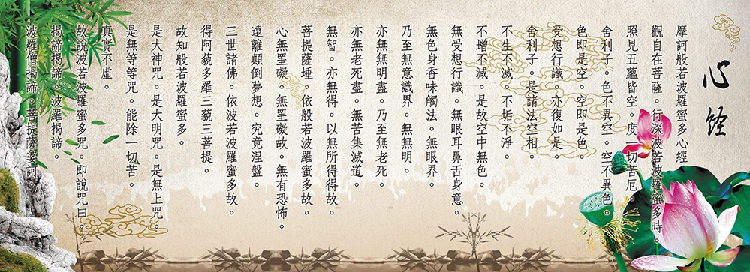 心经
摩訶般若波羅蜜多心經
觀自在菩薩。行深波若波羅蜜多時
照見五蘊皆空。度一切苦厄。
舍利子。色不異空。空不異色。
色即是空。空即是色。
受想行識。亦復如是。
舍利子。是諸法空相。
不生不滅。不垢不淨。
不增不減。是故空中無色。
無受想行識。無眼耳鼻舌身意。
無色身香味觸法。無眼界。
乃至無意識界。無無明。
亦無無明盡。乃至無老死。
亦無老死盡。無苦集滅道。
無智。亦無得。以無所得得故。
菩提薩埵。依般若波羅蜜多故。
心無罣礙。無罣礙故。無有恐怖。
遠離顛倒夢想。究竟涅盤。
三世諸佛。依波若波羅蜜多故。
得阿耨多羅三藐三菩提。
故知般若波羅蜜多。
是大神咒。是大明咒。是無上咒。
是無等等咒。能除一切苦。
真實不虛。
故說波若波羅蜜多咒。即說咒曰。
揭諦揭諦。波羅揭諦。
波羅僧揭諦。菩提薩婆訶。